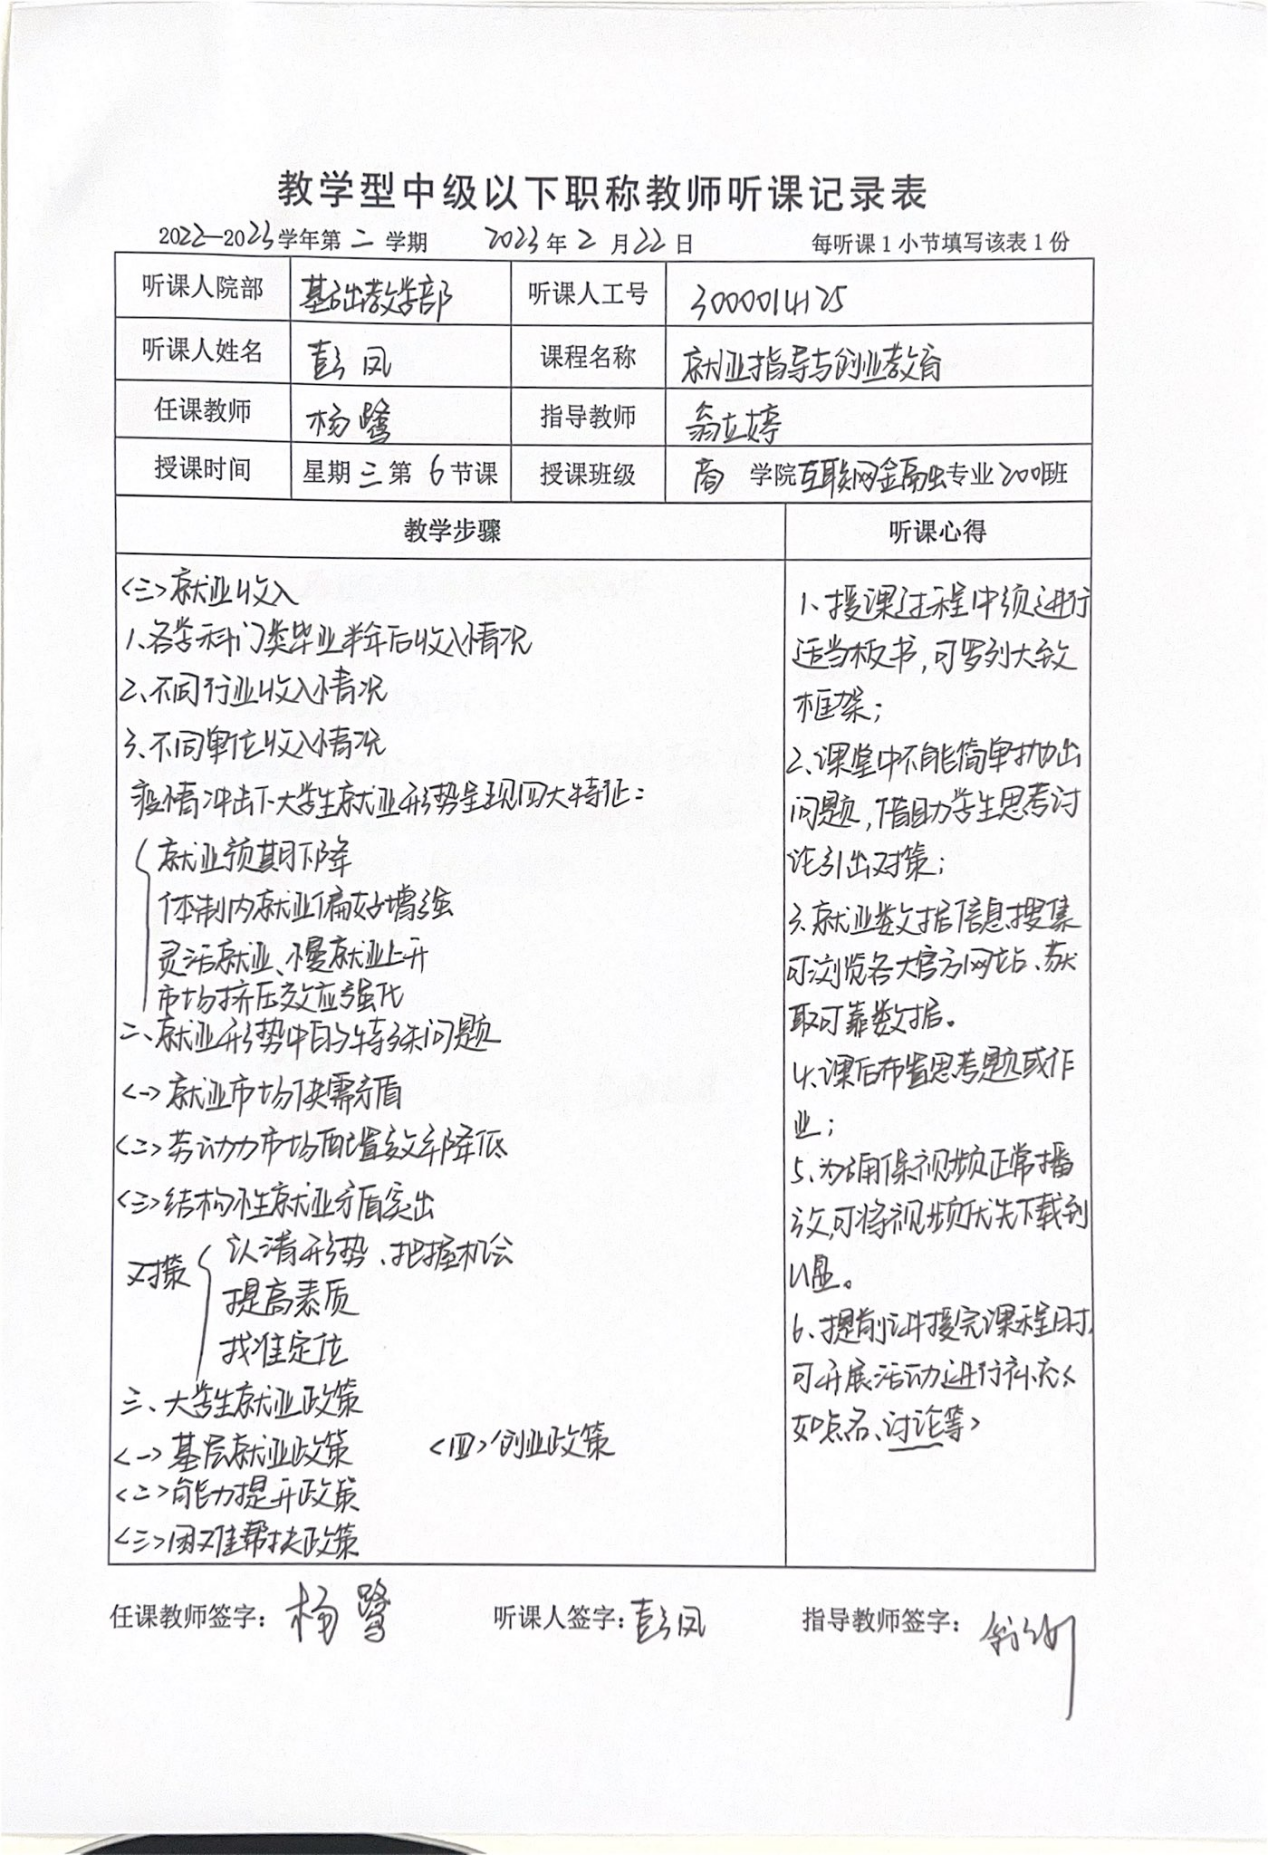 教学型中级以下职称教师听课记录表
2022—2023学年第二学期 2023年2月22日 每听课1小节填写该表1份
听课人院部 基础教学部 听课人工号 3000014125
听课人姓名 彭凤 课程名称 就业指导与创业教育
任课教师 杨鹭 指导教师 翁立婷
授课时间 星期三第6节课 授课班级 商学院互联网金融专业2001班
教学步骤 听课心得
<三>就业收入
1、各学科门类毕业半年后收入情况
2、不同行业收入情况
3、不同单位收入情况
疫情冲击下大学生就业形势呈现四大特征：
就业预期下降
体制内就业偏好增强
灵活就业、慢就业上升
市场挤压效应强化
二、就业形势中的特殊问题
<一>就业市场供需矛盾
<二>劳动力市场配置效率降低
<三>结构性就业矛盾突出
对策 认清形势、把握机会
提高素质
找准定位
三、大学生就业政策
<一>基层就业政策 <四>创业政策
<二>能力提升政策
<三>困难帮扶政策
1、授课过程中须进行
适当板书，可罗列大致
框架；
2、课堂中不能简单抛出
问题，借助学生思考讨
论引出对策；
3、就业数据信息搜集
可浏览各大官方网站、获
取可靠数据。
4、课后布置思考题或作
业；
5、为确保视频正常播
放，可将视频优先下载到
U盘。
6、提前讲授完课程时，
可开展活动进行补充<
如点名、讨论等>
任课教师签字：杨鹭 听课人签字：彭凤 指导教师签字：